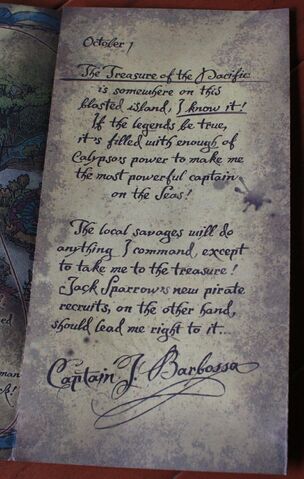 October 1
The Treasure of the Pacific
is somewhere on this
blasted island, I know it!
If the legends be true,
it's filled with enough of
Calypso's power to make me
the most powerful captain
on the Seas!
The local savages will do
anything I command, except
to take me to the treasure!
Jack Sparrow's new pirate
recruits, on the other hand,
should lead me right to it...
Captain J. Barbossa